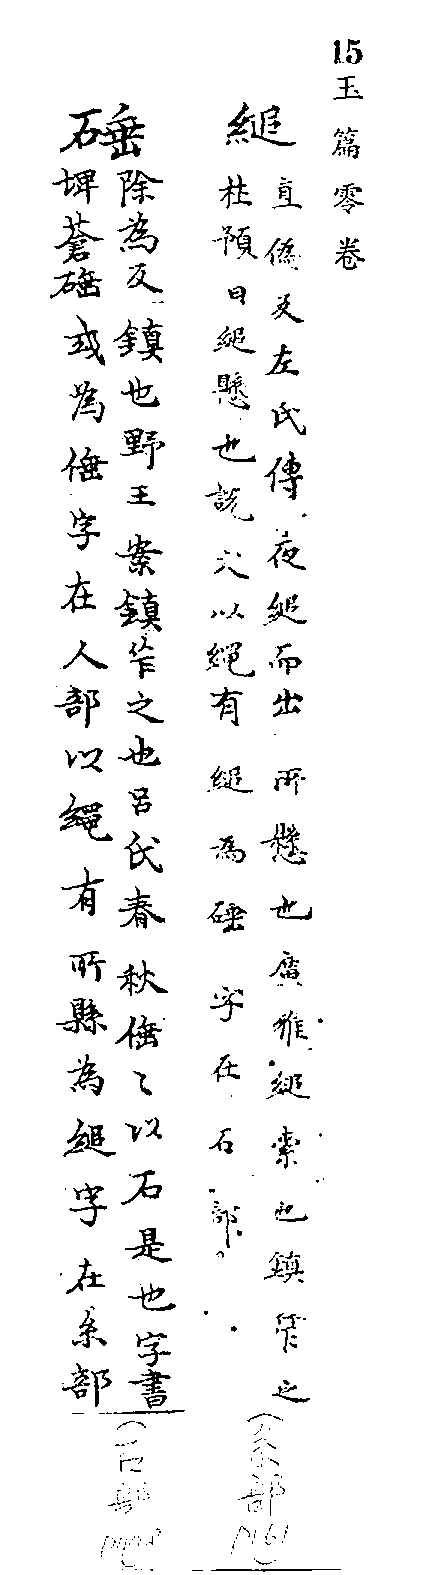 15 玉篇零卷
縋
直偽反左氏傳夜縋而出所懸也廣雅縋索也鎮笮之
杜預曰縋懸也說文以繩有縋為硾字在石部。
硾
除為反鎮也野王案鎮笮之也呂氏春秋倕〻以石是也字書
埤蒼硾或為倕字在人部以繩有所縣為縋字在糸部
(糸部 P161)
(石部